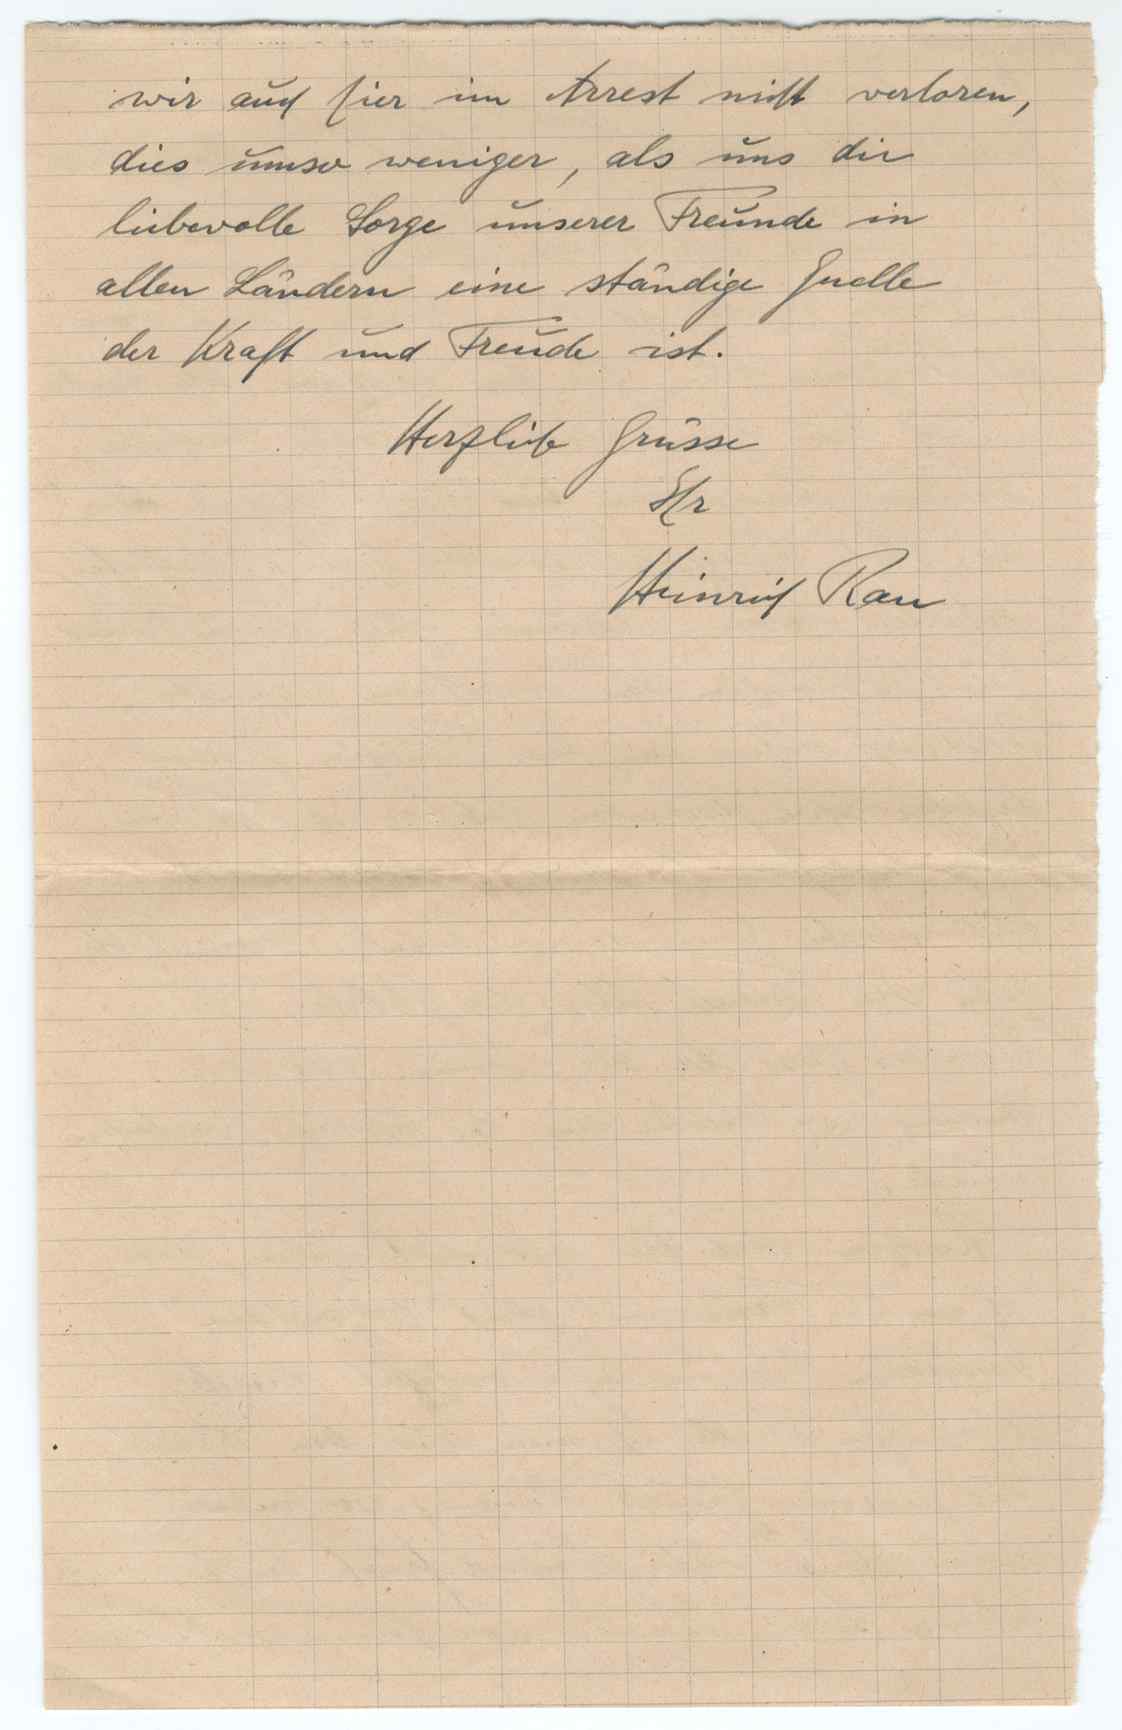 wir auch hier im Arrest nicht verloren,
dies umso weniger, als uns die
liebevolle Sorge unserer Freunde in
allen Ländern eine ständige Quelle
der Kraft und Freude ist.
Herzliche Grüsse
Ihr
Heinrich Rau